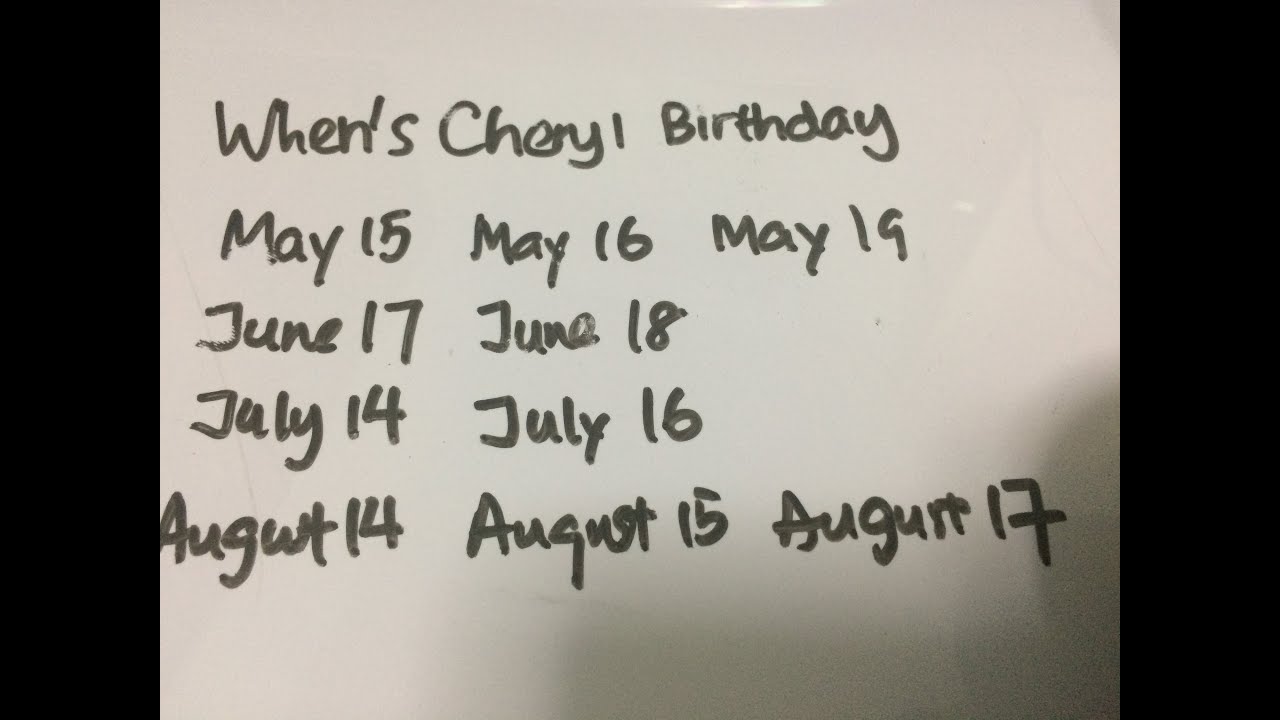 When's Cheryl Birthday
May 15 May 16 May 19
June 17 June 18
July 14 July 16
August 14 August 15 August 17